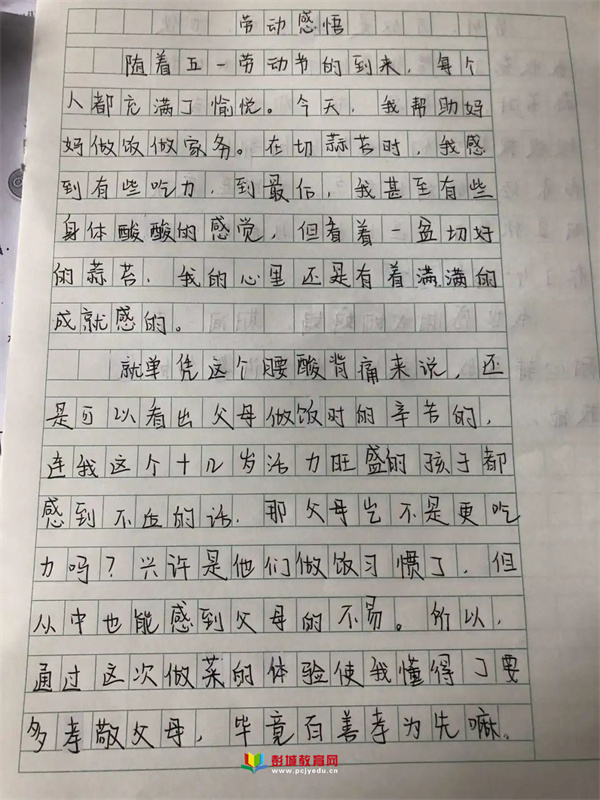 劳动感悟
随着五一劳动节的到来，每个
人都充满了愉悦。今天，我帮助妈
妈做饭做家务。在切蒜苔时，我感
到有些吃力，到最后，我甚至有些
身体酸酸的感觉，但看着一盆切好
的蒜苔，我的心里还是有着满满的
成就感的。
就单凭这个腰酸背痛来说，还
是可以看出父母做饭时的辛苦的，
连我这个十几岁活力旺盛的孩子都
感到不适的话，那父母岂不是更吃
力吗？兴许是他们做饭习惯了，但
从中也能感到父母的不易。所以，
通过这次做菜的体验使我懂得了要
多孝敬父母，毕竟百善孝为先嘛。
彭城教育网
www.pcjyedu.cn